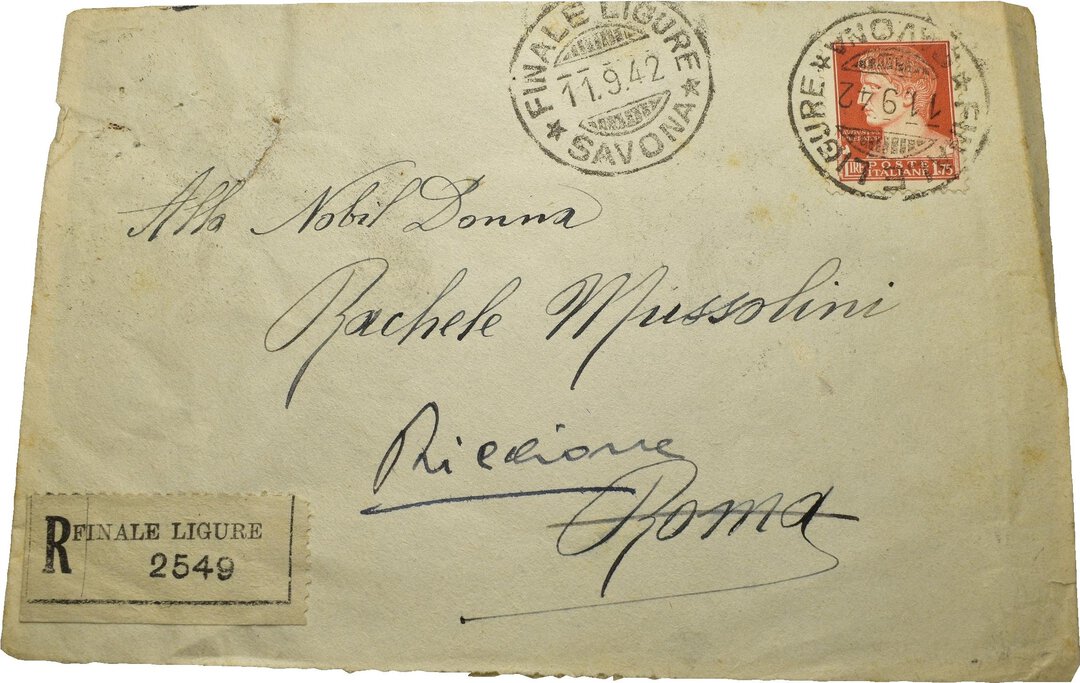 FINALE LIGURE
11.9.42
SAVONA
FINALE LIGURE
11.9.42
SAVONA
LIRE POSTE ITALIANE 1.75
Alla Nobil Donna
Rachele Mussolini
Riccione
Roma
R FINALE LIGURE
2549